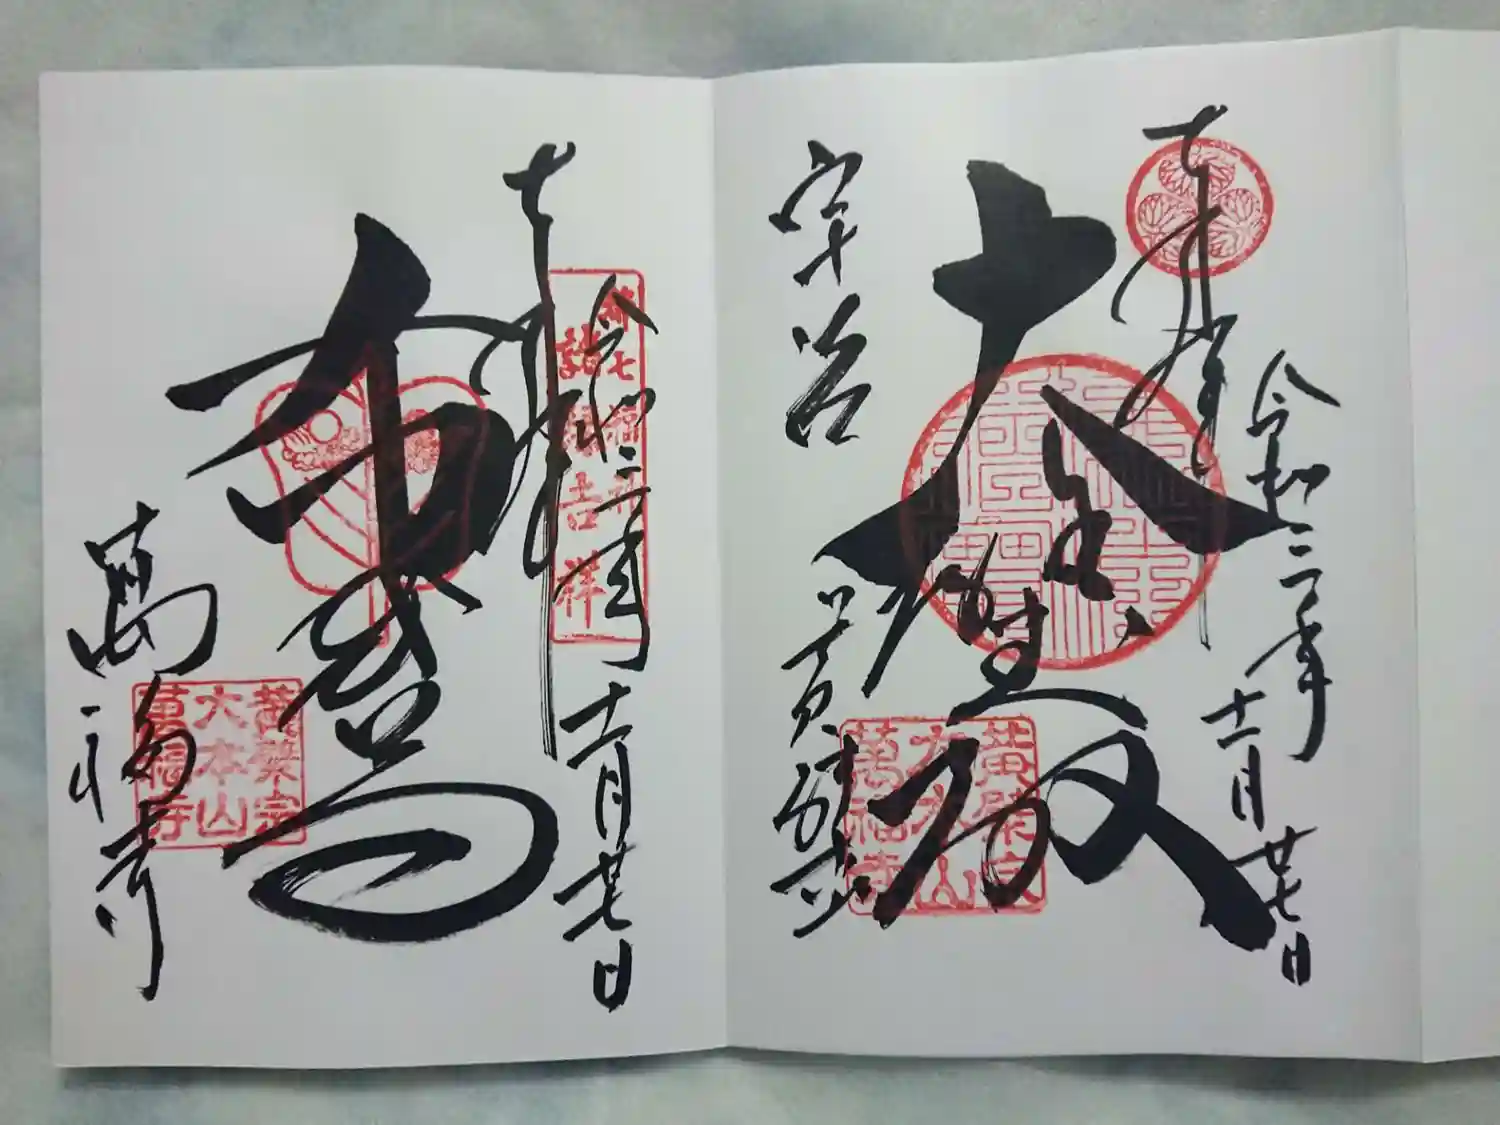 奉拝
令和二年
十一月廿七日
宇治
黄檗山
黄檗宗
大本山
萬福寺
奉拝
都七福神
諸縁吉祥
令和二年
十一月廿七日
布袋
萬福寺
黄檗宗
大本山
萬福寺